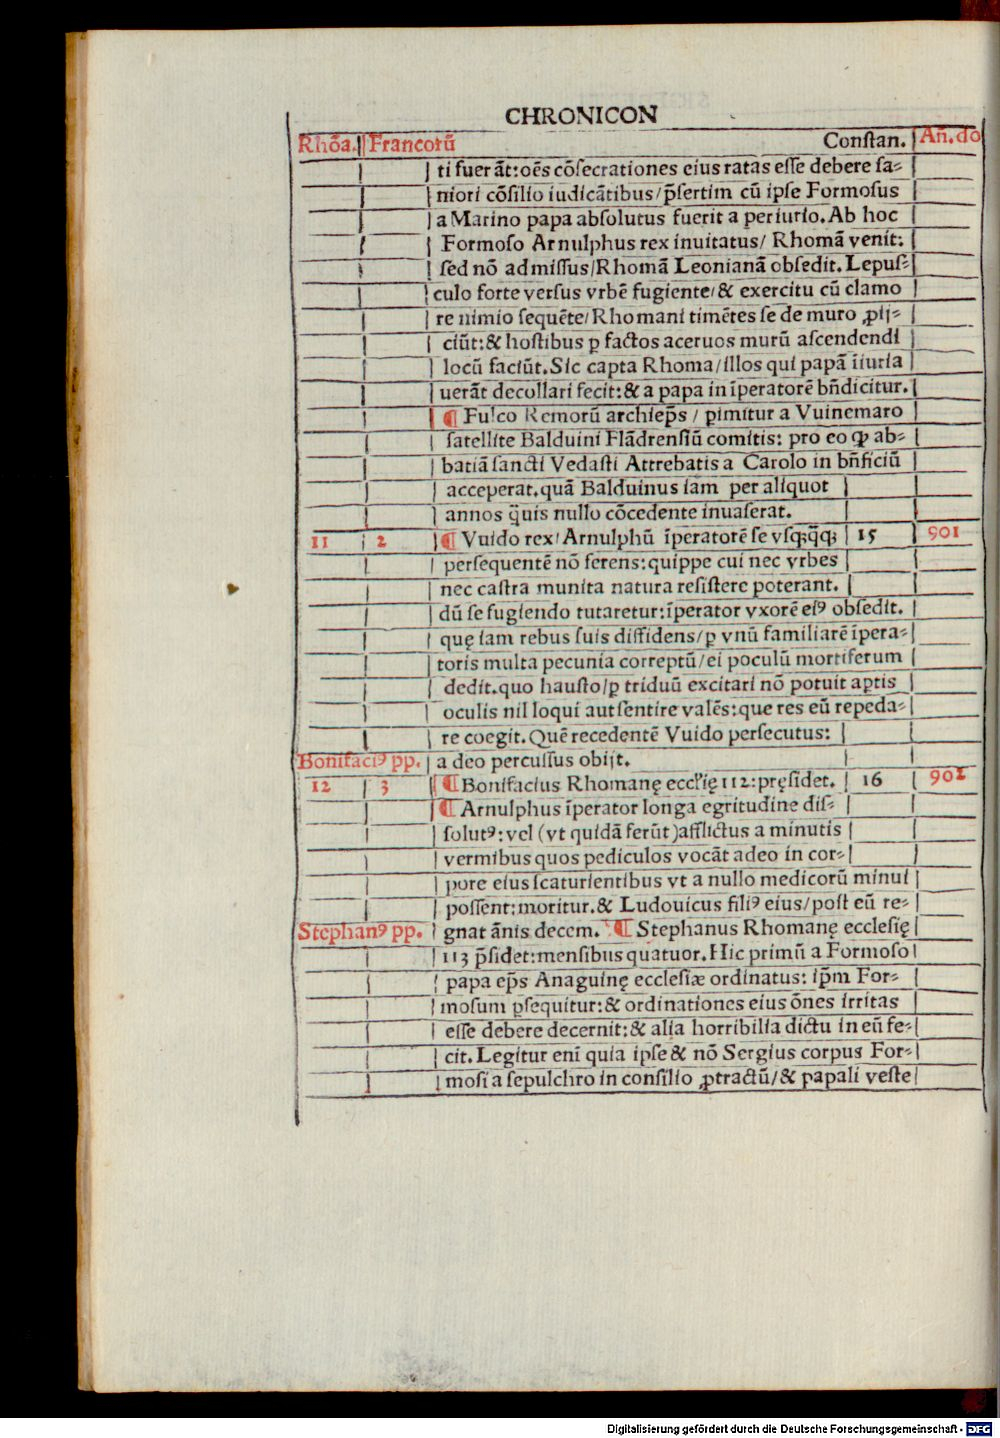 CHRONICON
Rhõa. Francorũ Constan. Añ.do
ti fuerãt:oẽs cõsecrationes eius ratas esse debere sa⸗
niori cõsilio iudicãtibus/p̃sertim cũ ipse Formosus
a Marino papa absolutus fuerit a periurio. Ab hoc
Formoso Arnulphus rex inuitatus/ Rhomã venit:
sed nõ admissus/Rhomã Leonianã obsedit. Lepus⸗
culo forte versus vrbẽ fugiente/& exercitu cũ clamo
re nimio sequẽte/Rhomani timẽtes se de muro ꝓij⸗
ciũt:& hostibus ꝑ factos aceruos murũ ascendendi
locũ faciũt. Sic capta Rhoma/illos qui papã ĩiuria
uerãt decollari fecit:& a papa in ĩperatorẽ bñdicitur.
¶ Fulco Remorũ archiep̃s / ꝑimitur a Vuinemaro
satellite Balduini Flãdrensiũ comitis: pro eo ꝙ ab⸗
batiã sancti Vedasti Attrebatis a Carolo in bñficiũ
acceperat.quã Balduinus iam per aliquot
annos q̃uis nullo cõcedente inuaserat.
11 2 ¶ Vuido rex/Arnulphũ ĩperatorẽ se vsqꝫq̃qꝫ 15 901
persequentẽ nõ ferens:quippe cui nec vrbes
nec castra munita natura resistere poterant.
dũ se fugiendo tutaretur:ĩperator vxorẽ eiꝰ obsedit.
quę iam rebus suis diffidens/ꝑ vnũ familiarẽ ĩpera⸗
toris multa pecunia correptũ/ei poculũ mortiferum
dedit.quo hausto/ꝑ triduũ excitari nõ potuit aꝑtis
oculis nil loqui aut sentire valẽs:que res eũ repeda⸗
re coegit. Quẽ recedentẽ Vuido persecutus:
Bonifaciꝰ pp. a deo percussus obijt.
12 3 ¶ Bonifacius Rhomanę eccľię 112:pręsidet. 16 902
¶ Arnulphus ĩperator longa egritudine dis⸗
solutꝰ:vel (vt quidã ferũt)afflictus a minutis
vermibus quos pediculos vocãt adeo in cor⸗
pore eius scaturientibus vt a nullo medicorũ minui
possent:moritur.& Ludouicus filiꝰ eius/post eũ re⸗
Stephanꝰ pp. gnat ãnis decem. ¶ Stephanus Rhomanę ecclesię
113 p̃sidet:mensibus quatuor. Hic primũ a Formoso
papa ep̃s Anaguinę ecclesiæ ordinatus: ip̃m For⸗
mosum ꝑsequitur:& ordinationes eius õnes irritas
esse debere decernit:& alia horribilia dictu in eũ fe⸗
cit. Legitur enĩ quia ipse & nõ Sergius corpus For⸗
mosi a sepulchro in consilio ꝓtractũ/& papali veste
Digitalisierung gefördert durch die Deutsche Forschungsgemeinschaft - DFG